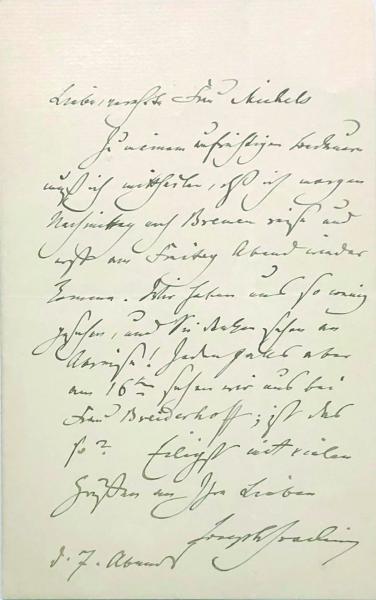 Liebe, verehrte Frau Michels
Zu meinem aufrichtigen Bedauern
muß ich mittheilen, daß ich morgen
Nachmittag nach Bremen reise und
erst am Freitag Abend wieder
komme. Wir haben uns so wenig
gesehen, und Sie denken schon an
Abreise! Jedenfalls aber
am 16ten sehen wir uns bei
Frau Breiderhoff; ist das
so? Eiligst mit vielen
Grüßen an Ihre Lieben
Joseph Joachim
d. 7. Abends